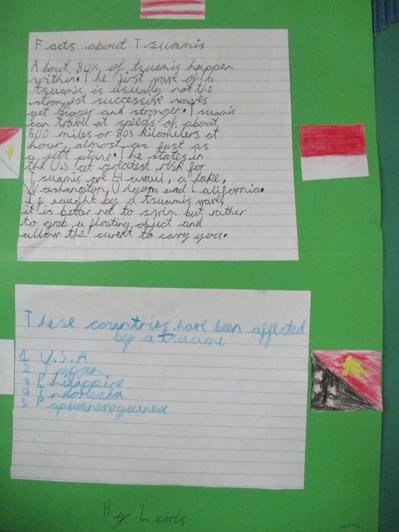 Facts about Tsuamis
About 80% of tsuamis happen
within. The first wave of a
tsuamis is usually not the
strongest successive waves
get bigger and stronger. Tsuamis
can travel at speeds of about
500 miles or 805 kilometers at
hour, almost as fast as
a jett plane. The states in
the U.S at greatest risk for
Tsuamis are Hawaii, a laka,
Washington, Oregon and California.
If caught by a tsuamis wave,
it is better not to swim but rather
to grab a floating object and
allow the curent to carry you.
These countries have been affected
by a tsuami
1 U.S.A
2 Japan
3 Philippine
4 Indonesia
5 Papuanewguinea
By Lewis